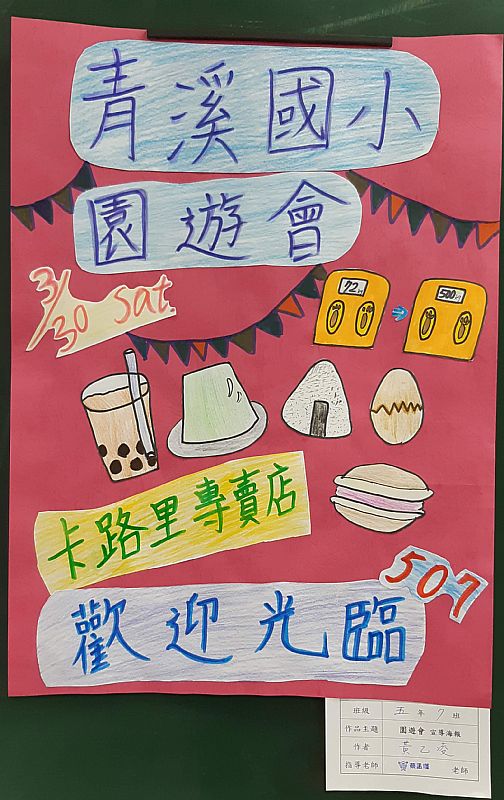 青溪國小
園遊會
3/30 Sat.
72kg
500kg
卡路里專賣店
507
歡迎光臨
班級 五年7班
作品主題 園遊會 宣導海報
作者 黃乙凌
指導老師 老師